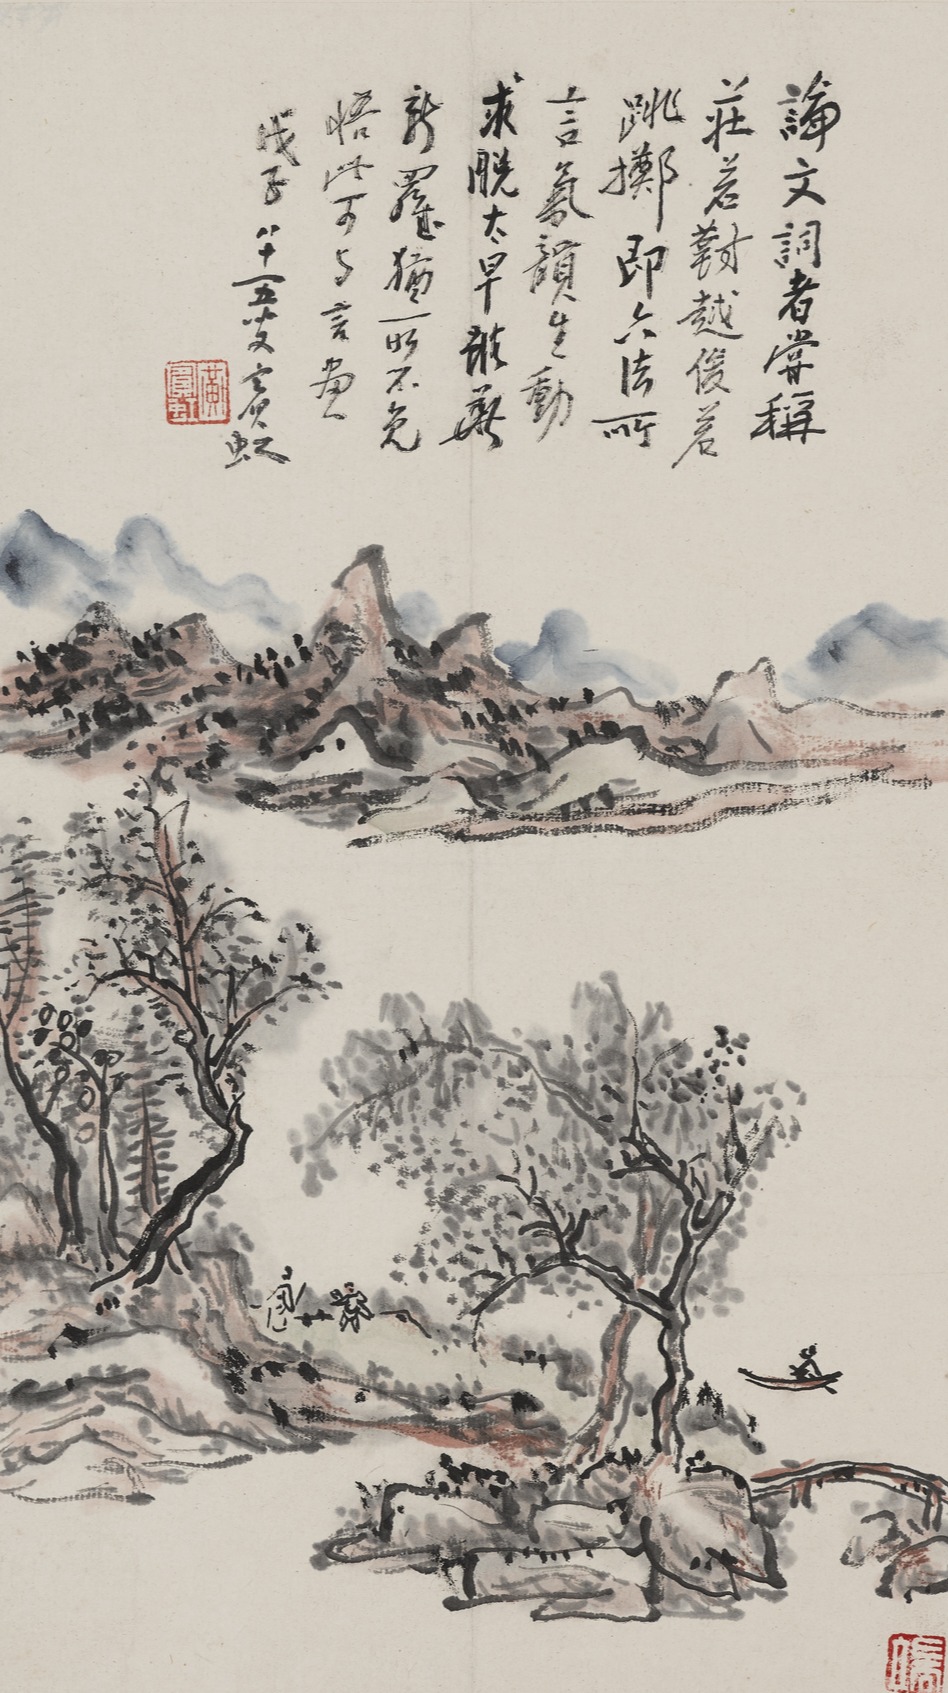 論文詞者嘗稱
莊若對越俊若
跳擲即六法所
言氣韻生動
求脫太早離葊
新羅猶一所不免
悟此可與言畫
戊子八十五叟賓虹
黃賓虹